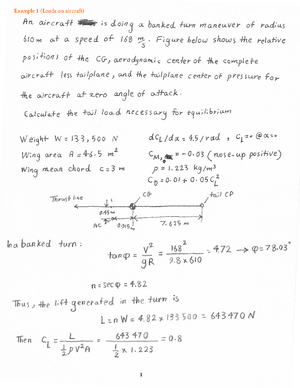 Example 1 (Loads on aircraft)
An aircraft is doing a banked turn maneuver of radius
610 m at a speed of 168 m/s. Figure below shows the relative
positions of the CG, aerodynamic center of the complete
aircraft less tailplane, and the tailplane center of pressure for
the aircraft at zero angle of attack.
Calculate the tail load necessary for equilibrium
Weight W = 133,500 N dCL/dα = 4.5/rad , CL=0 @ α=0
Wing area A = 46.5 m² CM, = -0.03 (nose-up positive)
Wing mean chord c = 3 m ρ = 1.223 kg/m³
CD = 0.01 + 0.05 CL²
CG tail CP
Thrust line
0.15m
AC 0.915m 7.625 m
In a banked turn: tanφ = V²/gR = 168²/9.8 × 610 = 4.72 → φ = 78.03°
n = sec φ = 4.82
Thus, the lift generated in the turn is
L = nW = 4.82 × 133 500 = 643 470 N
Then CL = L / ½ρV²A = 643 470 / ½ × 1.223 = 0.8